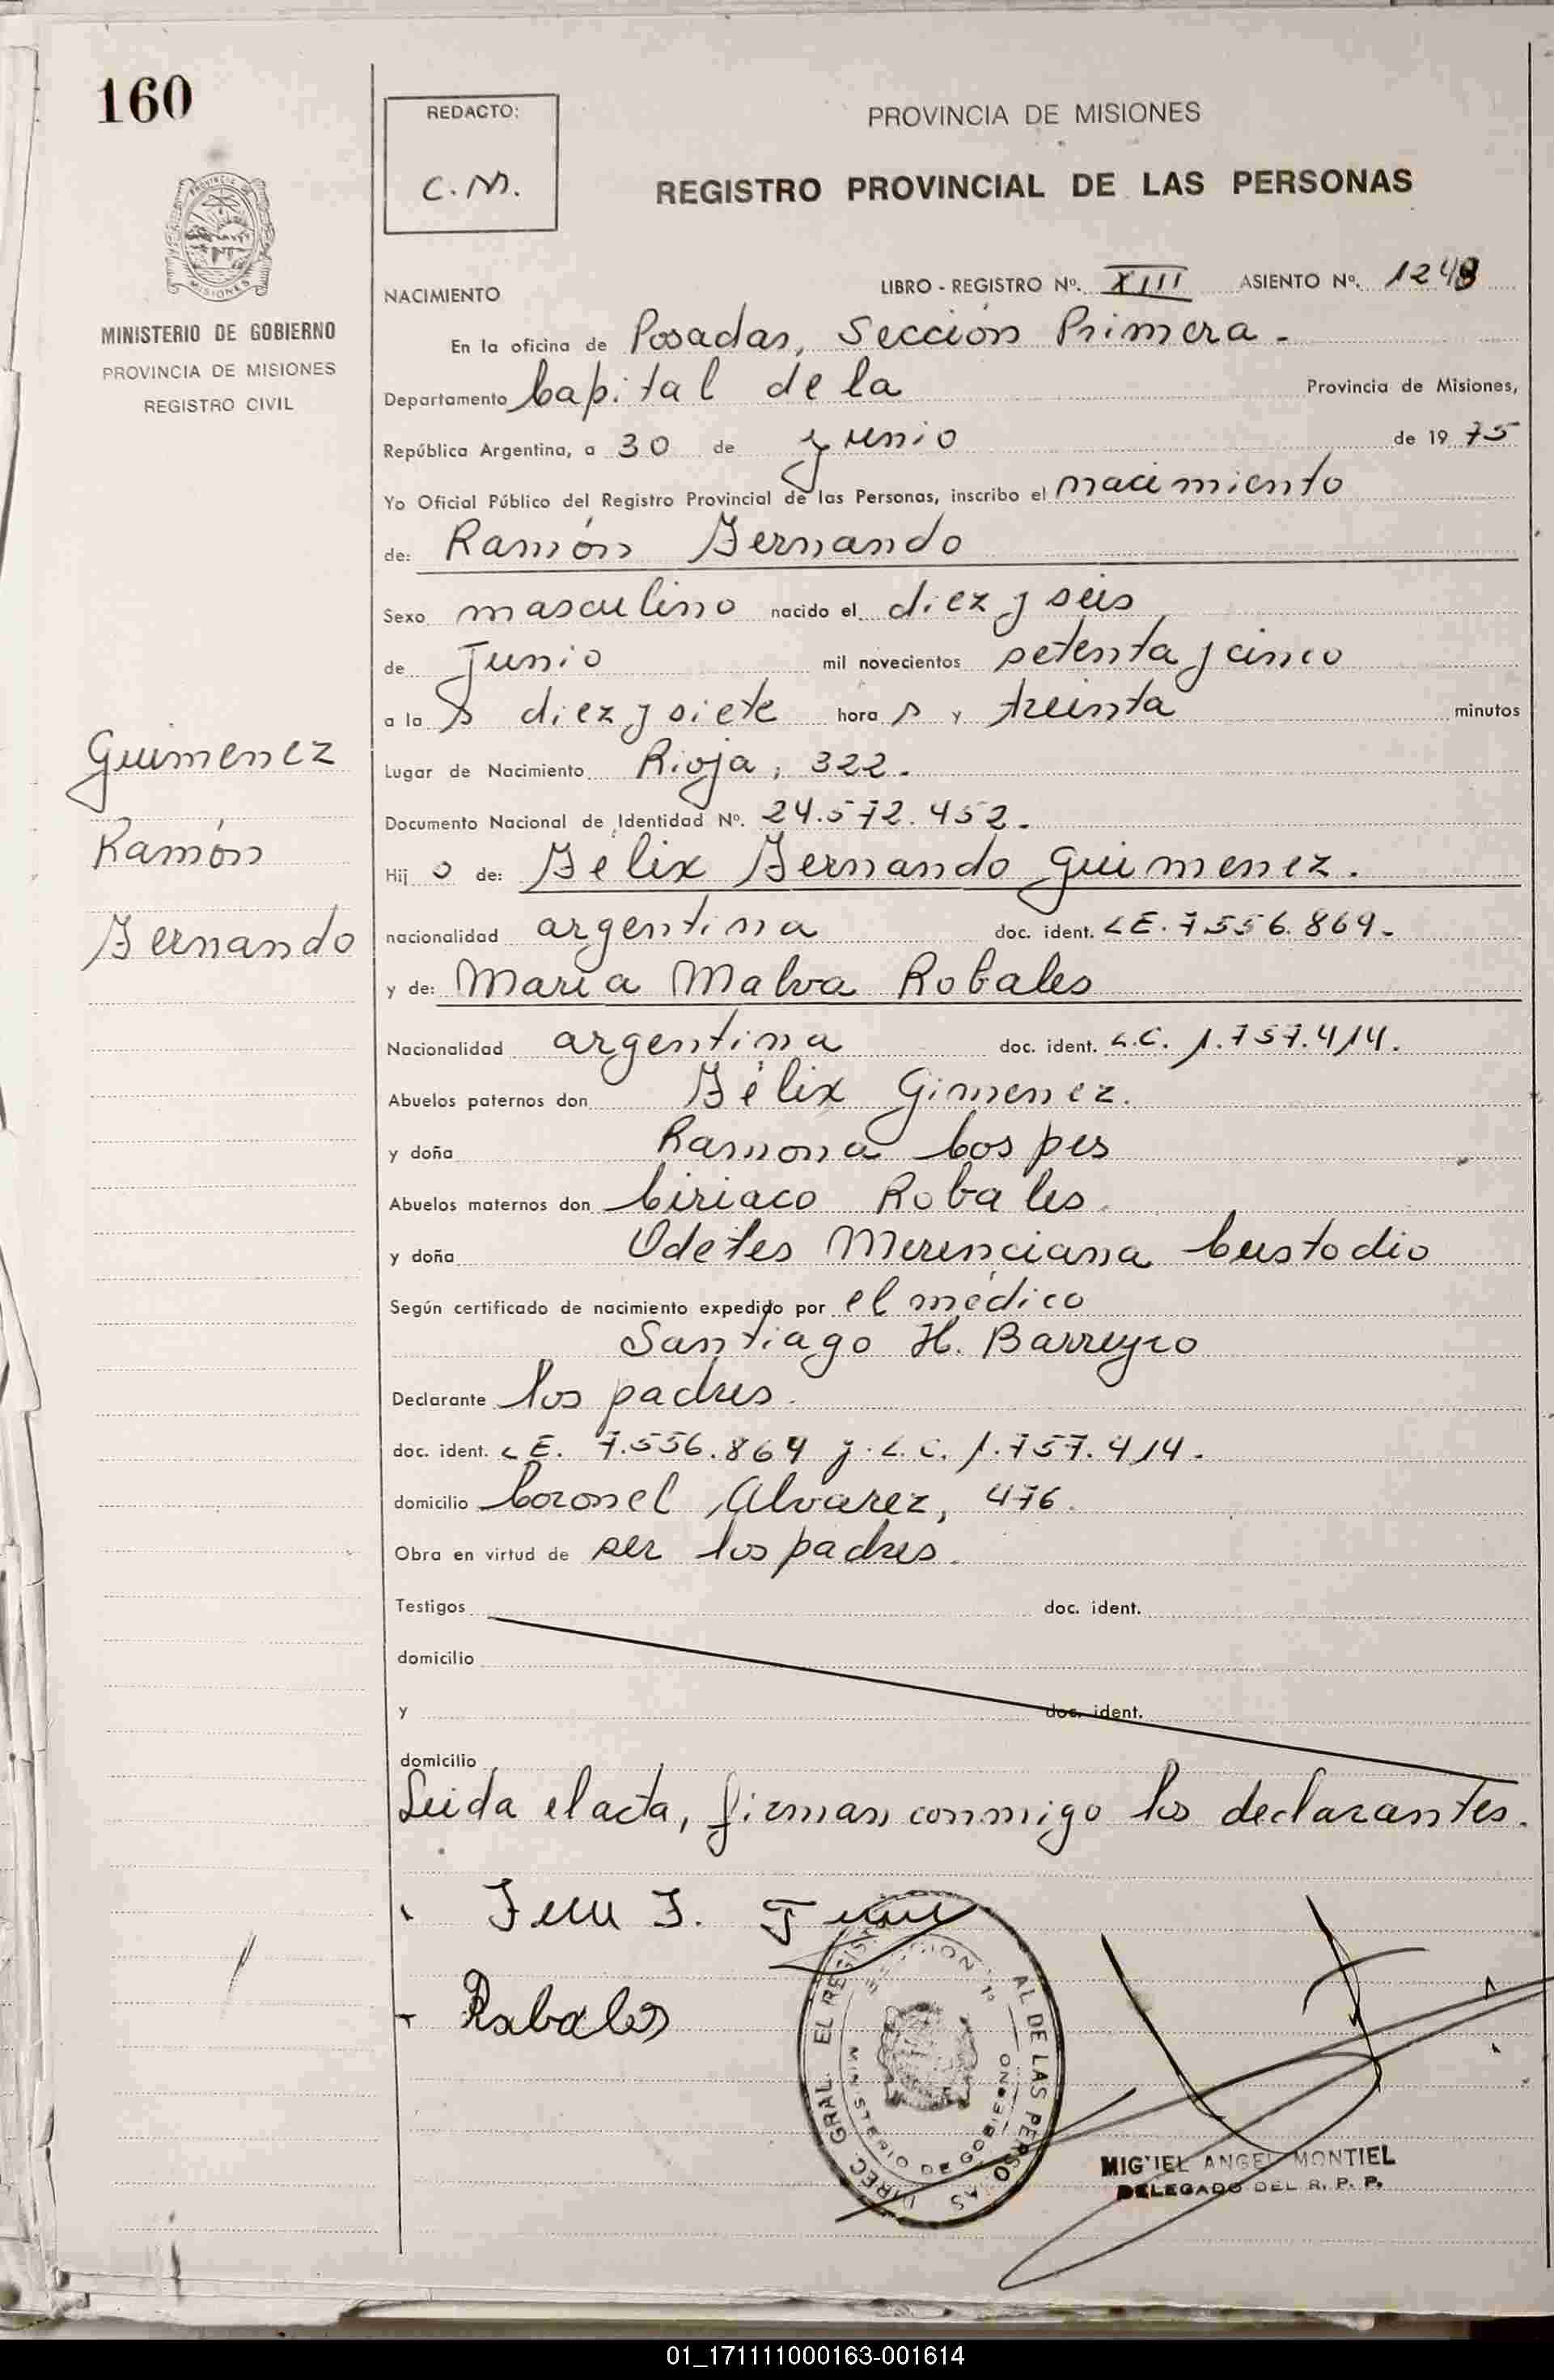 160
PROVINCIA DE
MISIONES
MINISTERIO DE GOBIERNO
PROVINCIA DE MISIONES
REGISTRO CIVIL
Guimenez
Ramón
Fernando
REDACTO:
C.M.
PROVINCIA DE MISIONES
REGISTRO PROVINCIAL DE LAS PERSONAS
NACIMIENTO LIBRO - REGISTRO Nº. XIII ASIENTO Nº. 1248
En la oficina de Posadas, Sección Primera.
Departamento Capital de la Provincia de Misiones,
República Argentina, a 30 de junio de 1975
Yo Oficial Público del Registro Provincial de las Personas, inscribo el nacimiento
de: Ramón Fernando
Sexo masculino nacido el diez y seis
de Junio mil novecientos setenta y cinco
a las diez y siete horas y treinta minutos
Lugar de Nacimiento Rioja, 322.
Documento Nacional de Identidad Nº. 24.572.452.
Hijo de: Félix Fernando Guimenez.
nacionalidad argentina doc. ident. LE. 7.556.869.
y de: María Malva Robales
Nacionalidad argentina doc. ident. L.C. 1.757.414.
Abuelos paternos don Félix Gimenez.
y doña Ramona Cospes
Abuelos maternos don Ciriaco Robales.
y doña Odetes Merenciana Custodio
Según certificado de nacimiento expedido por el médico
Santiago H. Barreyro
Declarante los padres.
doc. ident. LE. 7.556.869 y L.C. 1.757.414.
domicilio Coronel Alvarez, 476.
Obra en virtud de ser los padres.
Testigos doc. ident.
domicilio
y doc. ident.
domicilio
Leida el acta, firman conmigo los declarantes.
Robales
SECCION 1º
MINISTERIO DE GOBIERNO
MIGUEL ANGEL MONTIEL
DELEGADO DEL R. P. P.
01_171111000163-001614